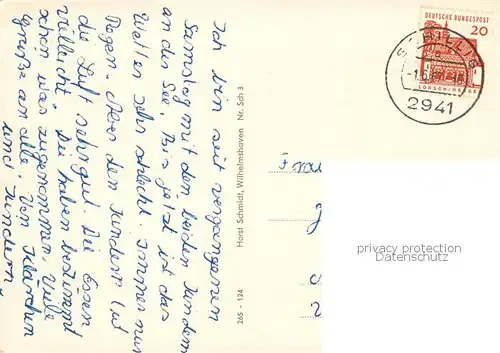 Ich bin seit vergangenen
Samstag mit den beiden Kindern
an der See, Bis jetzt ist das
Wetter sehr schlecht. Immer nur
Regen. Aber den Kindern tut
die Luft sehr gut. Die Essen
vielleicht. Die haben bestimmt
schon was zugenommen. Viele
Grüße an alle. Von Klärchen
und Kindern.
Horst Schmidt, Wilhelmshaven Nr. Sch 3
265 - 124
Frau
DEUTSCHE BUNDESPOST
20
LORSCH/HESSEN
SCHILLIG
2941
privacy protection
Datenschutz